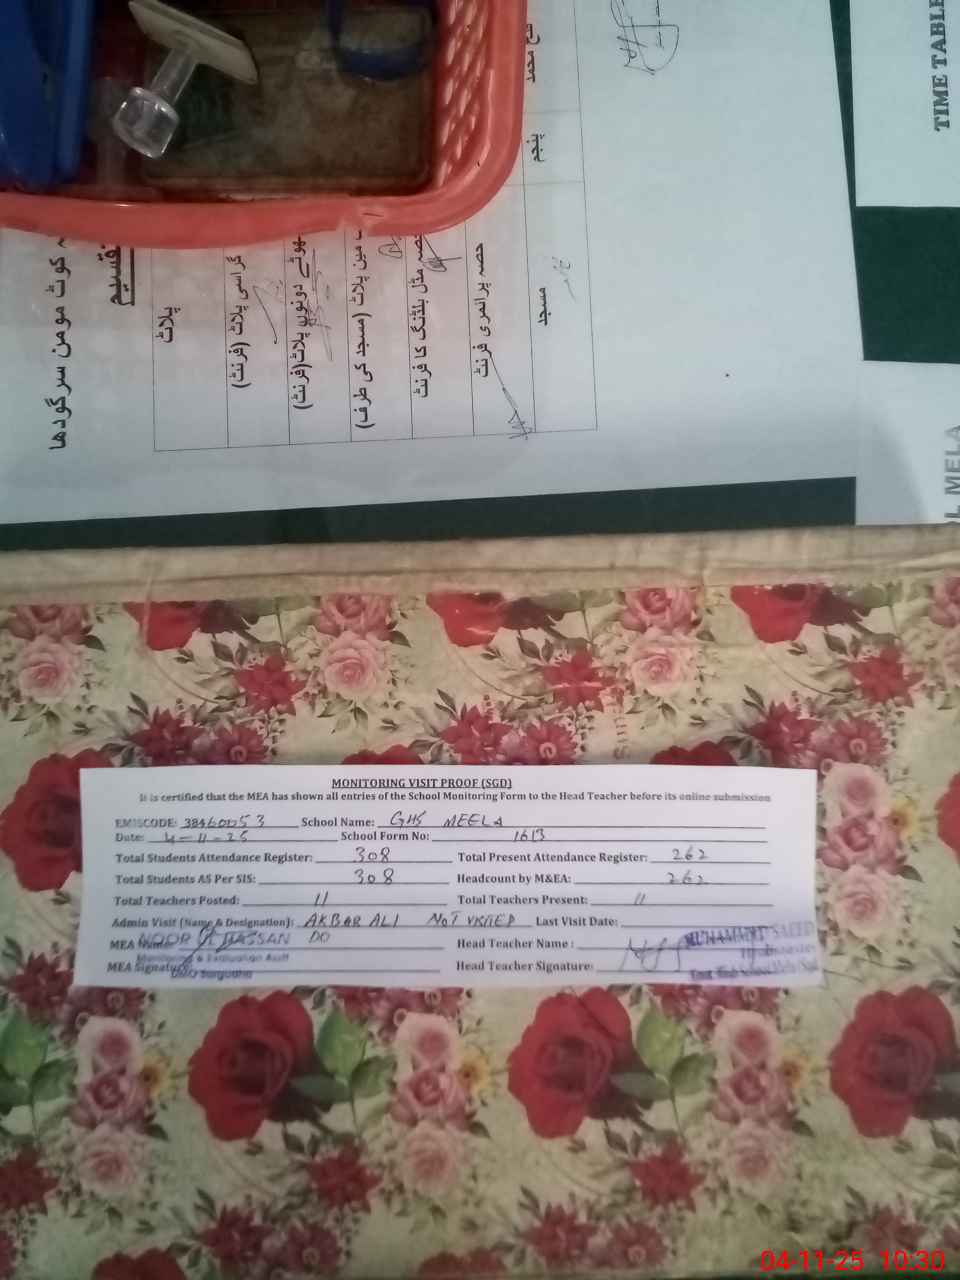 TIME TABLE
کوٹ مومن سرگودھا
تقسیم
پلاٹ
گراسی پلاٹ (فرنٹ)
چھوٹے دونوں پلاٹ (فرنٹ)
مین پلاٹ (مسجد کی طرف)
حصہ مڈل بلڈنگ کا فرنٹ
حصہ پرائمری فرنٹ
پنجم
مسجد
MELA
MONITORING VISIT PROOF (SGD)
It is certified that the MEA has shown all entries of the School Monitoring Form to the Head Teacher before its online submission
EMISCODE: 38460053 School Name: GHS MEELA
Date: 4-11-25 School Form No: 1613
Total Students Attendance Register: 308 Total Present Attendance Register: 262
Total Students AS Per SIS: 308 Headcount by M&EA: 262
Total Teachers Posted: 11 Total Teachers Present: 11
Admin Visit (Name & Designation): AKBAR ALI NOT VISITED Last Visit Date:
DO
MEA Name: NOOR UL HASSAN Head Teacher Name :
Monitoring & Evaluation Asstt
MEA Signature: Head Teacher Signature:
DMO Sargodha
MUHAMMAD SAEED
04-11-25 10:30